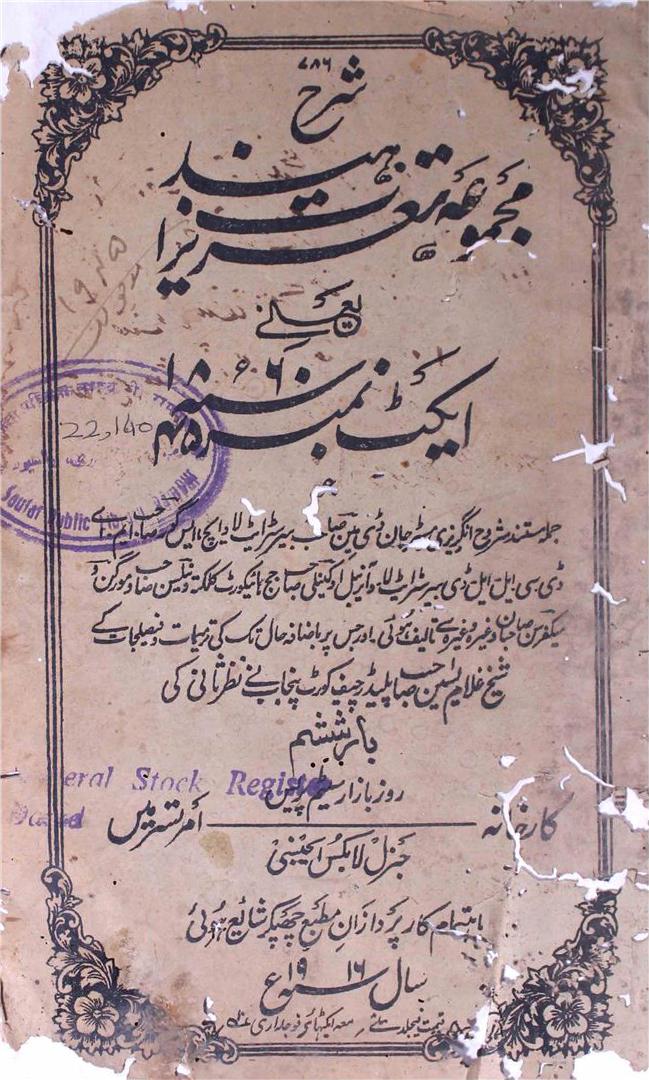 ۷۸۶
شرح
مجموعہ تعزیرات ہند
یعنے
ایکٹ نمبر ۴۵ سنہ ۱۸۶۰ء
22,140
Public
جملہ مستند شروح انگریزی مسٹر جان ڈی مین صاحب بیرسٹرایٹ لا و ایچ، ایس گور صاحب ایم۔ اے
ڈی سی۔ ایل۔ ایل۔ ڈی بیرسٹرایٹ لا و آنریبل اوکنیلی صاحب جج ہائیکورٹ کلکتہ و نیلسن صاحب و مورگن و
میکفرسن صاحبان وغیرہ وغیرہ سے تالیف ہوئی۔ اور جس پر باضافہ حال تک کی ترمیمات و فیصلجات کے
شیخ غلام یسین صاحب پلیڈر چیف کورٹ پنجاب نے نظر ثانی کی
بار ششم
eral Stock Registe
روز بازار سٹیم پریس
کارخانہ امرتسر میں
جنرل لا بکس ایجنسی
باہتمام کارپردازانِ مطبع چھپکر شائع ہوئی
سال ۱۹۱۶ سنہ ع
قیمت فیجلد معہ ایکٹہائے فوجداری